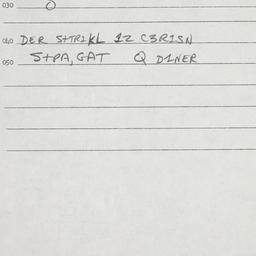 030 O
040 DER S+TRIKL 12 C3RISN
050 S+PA, GAT Q D1NER